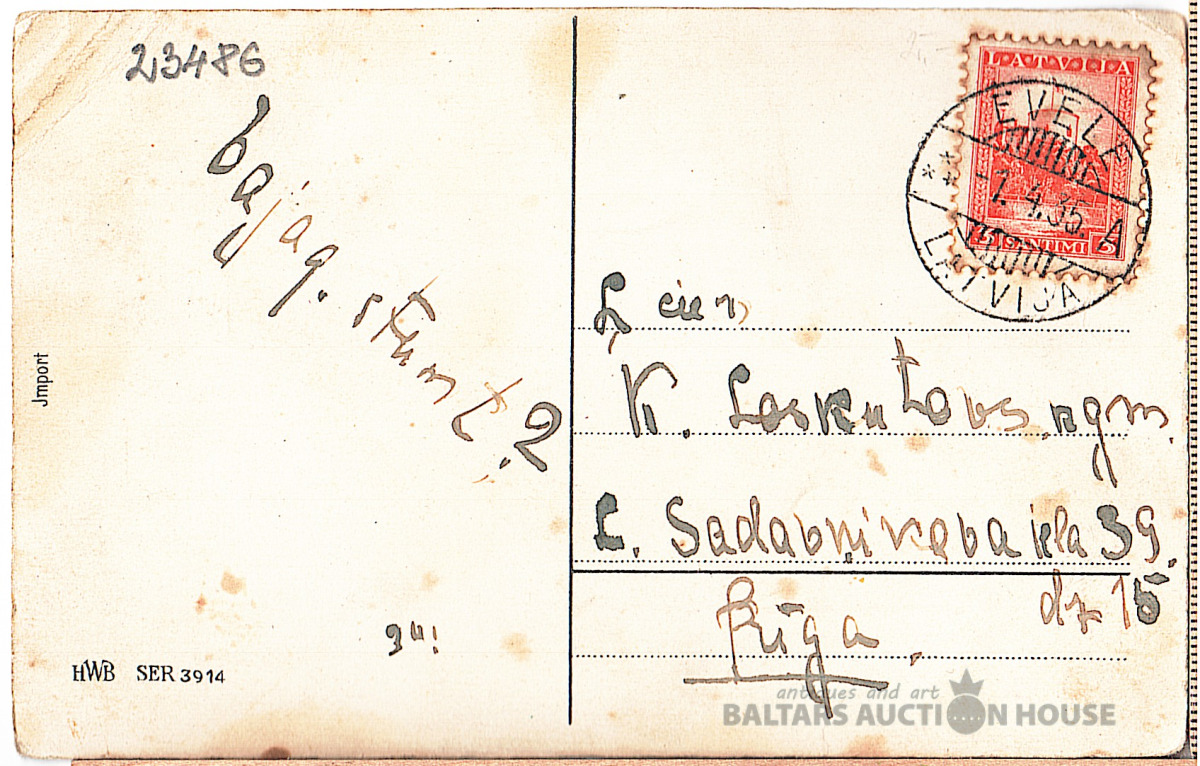 23486
bajāg. stumt?
Jmport
HWB SER 3914
LATVIJA
5 SANTIMI 5
EVELE
-1. 4. 35. A
LATVIJA
L cien
K. Loskutovs kgm.
L. Sadovņikova iela 39.
dz 15
Rīga.
antiques and art
BALTARS AUCTION HOUSE